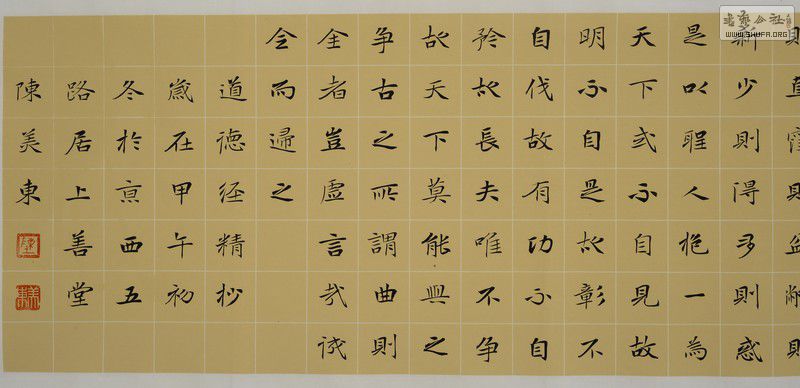 則直窪則盈敝則
新少則得多則惑
是以聖人抱一為
天下式不自見故
明不自是故彰不
自伐故有功不自
矜故長夫唯不争
故天下莫能與之
争古之所謂曲則
全者豈虛言哉誠
全而歸之
道德經精抄
歲在甲午初
冬於京西五
路居上善堂
陳美東
WWW.SHUFA.ORG